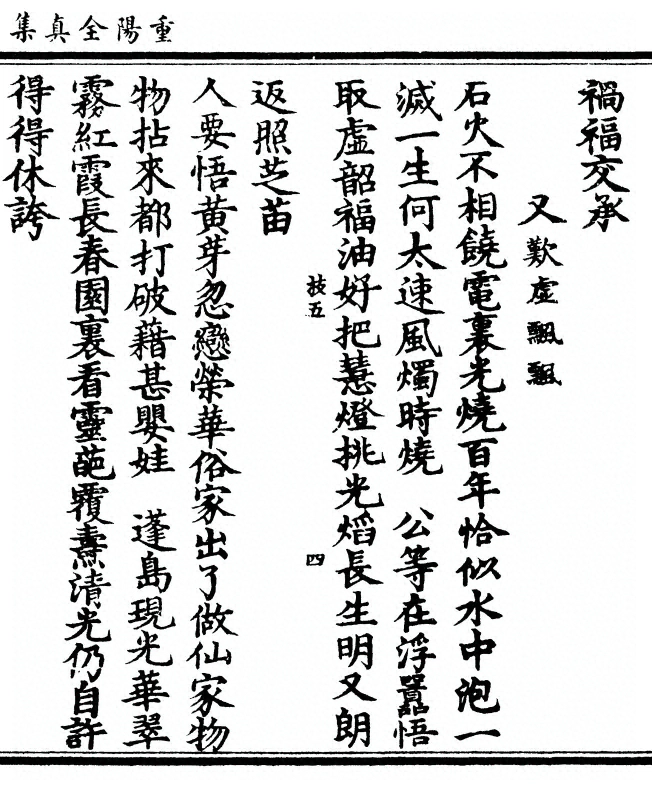 重陽全真集
禍福交承
又歎虛飄飄
石火不相饒電裏光燒百年恰似水中泡一
滅一生何太速風燭時燒　公等在浮囂悟
取虛韶福油好把慧燈挑光熖長生明又朗
技五
四
返照芝苗
人要悟黃芽忽戀榮華俗家出了做仙家物
物拈來都打破藉甚嬰娃　蓬島現光華翠
霧紅霞長春園裏看靈葩覆燾清光仍自許
得得休誇